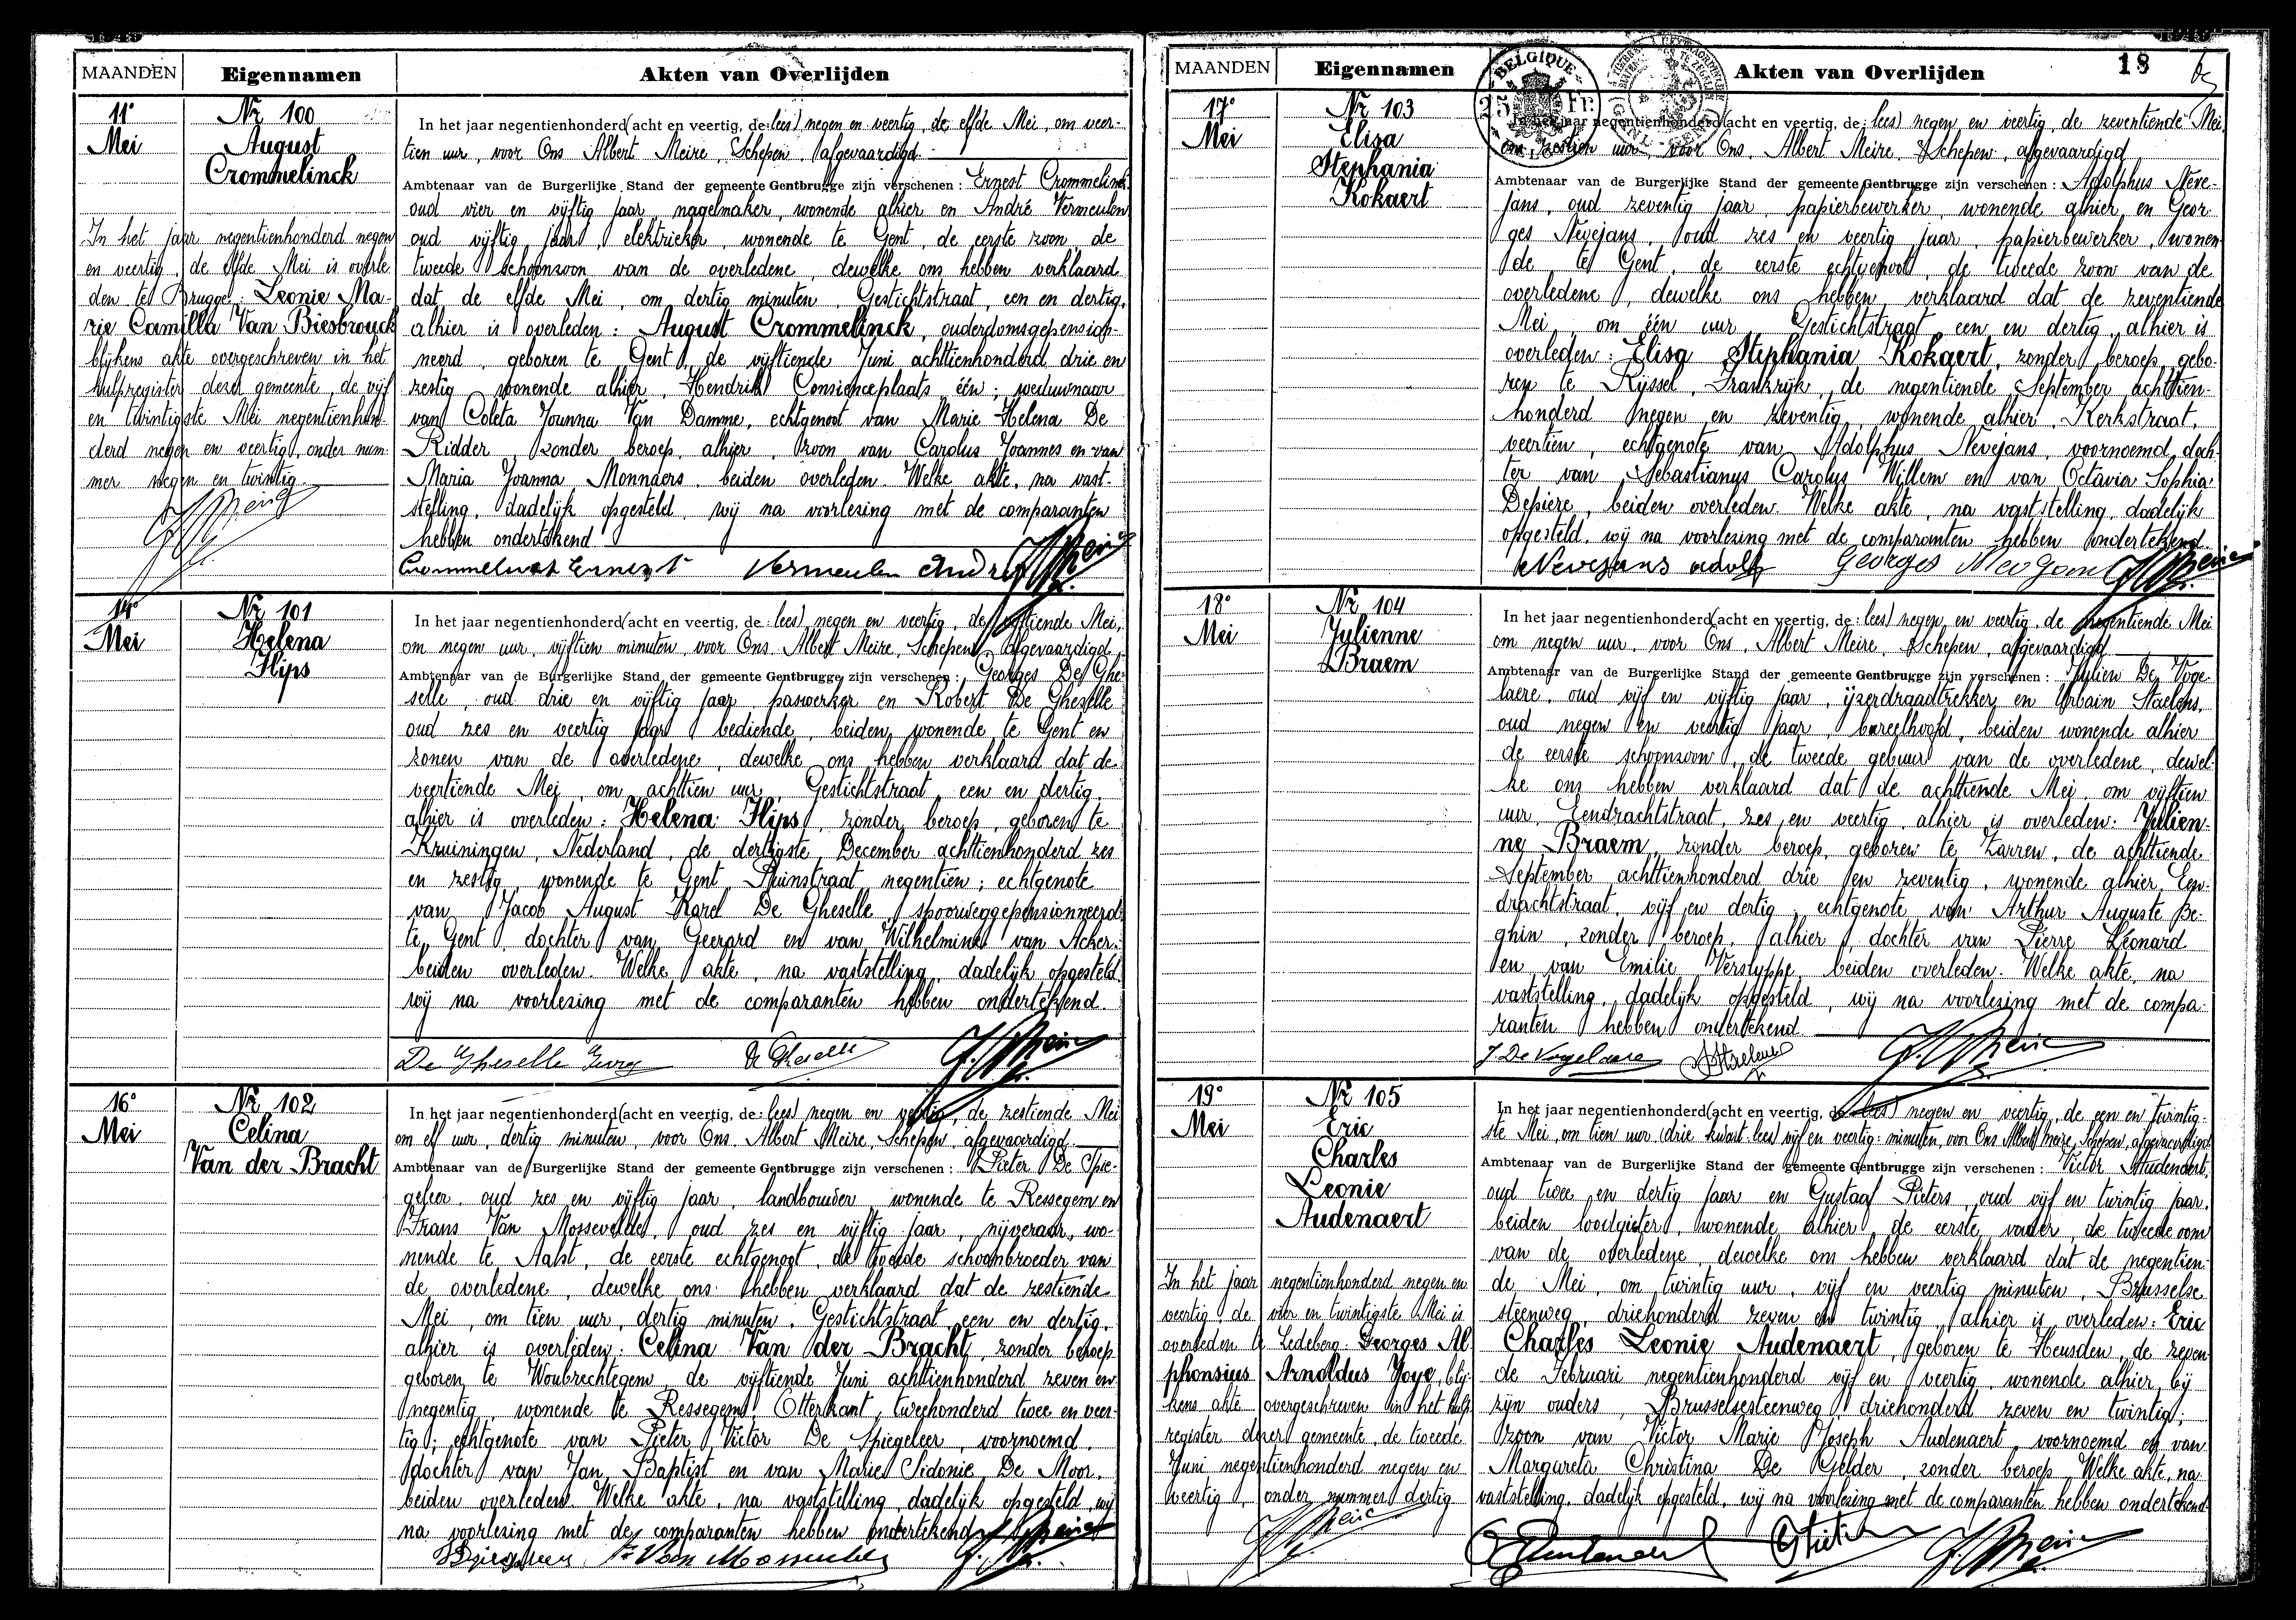 MAANDEN Eigennamen Akten van Overlijden
11° Mei
Nr 100
August
Crommelinck
In het jaar negentienhonderd (acht en veertig, de: lees) negen en veertig, de elfde Mei, om veer-
tien uur, voor Ons Albert Meire, Schepen, afgevaardigd
Ambtenaar van de Burgerlijke Stand der gemeente Gentbrugge zijn verschenen: Ernest Crommelinck
oud vier en vijftig jaar, nagelmaker, wonende alhier en André Vermeulen
oud vijftig jaar, elektrieker, wonende te Gent, de eerste zoon, de
tweede schoonzoon van de overledene, dewelke ons hebben verklaard
dat de elfde Mei, om dertig minuten, Gestichtstraat, een en dertig,
alhier is overleden: August Crommelinck, ouderdomsgepensio-
neerd, geboren te Gent, de vijftiende Juni achttienhonderd drie en
zestig wonende alhier, Hendrik Conscienceplaats één; weduwnaar
van Coleta Joanna Van Damme, echtgenoot van Marie Helena De
Ridder, zonder beroep, alhier, zoon van Carolus Joannes en van
Maria Joanna Monnaers, beiden overleden. Welke akte, na vast-
stelling, dadelijk opgesteld, wij na voorlezing met de comparanten
hebben ondertekend
Crommelinck Ernest Vermeulen André
In het jaar negentienhonderd negen
en veertig, de elfde Mei is overle
den te Brugge: Leonie Ma-
rie Camilla Van Biesbrouck
blijkens akte overgeschreven in het
hulpregister dezer gemeente, de vijf
en twintigste Mei negentienhon-
derd negen en veertig, onder num-
mer negen en twintig
14° Mei
Nr 101
Helena
Flips
In het jaar negentienhonderd (acht en veertig, de: lees) negen en veertig, de vijftiende Mei,
om negen uur, vijftien minuten, voor Ons Albert Meire, Schepen, afgevaardigd
Ambtenaar van de Burgerlijke Stand der gemeente Gentbrugge zijn verschenen: Georges De Ghe-
selle, oud drie en vijftig jaar, paswerker en Robert De Gheselle
oud zes en veertig jaar, bediende, beiden wonende te Gent en
zonen van de overledene, dewelke ons hebben verklaard dat de
veertiende Mei, om achttien uur, Gestichtstraat, een en dertig,
alhier is overleden: Helena Flips, zonder beroep, geboren te
Kruiningen, Nederland, de dertigste December achttienhonderd zes
en zestig, wonende te Gent, Puinstraat negentien; echtgenote
van Jacob August Karel De Gheselle, spoorweggepensionneerd,
te Gent, dochter van Geerard en van Wilhelmina van Acker,
beiden overleden. Welke akte, na vaststelling, dadelijk opgesteld
wij na voorlezing met de comparanten hebben ondertekend
De Gheselle De Gheselle
16° Mei
Nr 102
Celina
Van der Bracht
In het jaar negentienhonderd (acht en veertig, de: lees) negen en veertig, de zestiende Mei
om elf uur, dertig minuten, voor Ons Albert Meire, Schepen, afgevaardigd
Ambtenaar van de Burgerlijke Stand der gemeente Gentbrugge zijn verschenen: Pieter De Spie-
geleer, oud zes en vijftig jaar, landbouwer, wonende te Ressegem en
Frans Van Mossevelde, oud zes en vijftig jaar, nijveraar, wo-
nende te Aalst, de eerste echtgenoot, de tweede schoonbroeder van
de overledene, dewelke ons hebben verklaard dat de zestiende
Mei, om tien uur, dertig minuten, Gestichtstraat, een en dertig,
alhier is overleden: Celina Van der Bracht, zonder beroep
geboren te Woubrechtegem, de vijftiende Juni achttienhonderd zeven en
negentig, wonende te Ressegem, Otterkant, tweehonderd twee en veer-
tig; echtgenote van Pieter Victor De Spiegeleer, voornoemd,
dochter van Jan Baptist en van Marie Sidonie De Moor,
beiden overleden. Welke akte, na vaststelling, dadelijk opgesteld, wij
na voorlezing met de comparanten hebben ondertekend
MAANDEN Eigennamen Akten van Overlijden 18
BELGIQUE 25 Fr. BELGIE
17° Mei
Nr 103
Elisa
Stephania
Kokaert
In het jaar negentienhonderd (acht en veertig, de: lees) negen en veertig, de zeventiende Mei,
om zestien uur, voor Ons, Albert Meire, Schepen, afgevaardigd
Ambtenaar van de Burgerlijke Stand der gemeente Gentbrugge zijn verschenen: Adolphus Neve-
jans, oud zeventig jaar, papierbewerker, wonende alhier en Geor-
ges Nevejans, oud zes en veertig jaar, papierbewerker, wonen-
de te Gent, de eerste echtgenoot, de tweede zoon van de
overledene, dewelke ons hebben verklaard dat de zeventiende
Mei, om één uur, Gestichtstraat, een en dertig, alhier is
overleden: Elisa Stephania Kokaert, zonder beroep, gebo-
ren te Rijssel, Frankrijk, de negentiende September achttien-
honderd negen en zeventig, wonende alhier, Kerkstraat,
veertien, echtgenote van Adolphus Nevejans, voornoemd, doch-
ter van Sebastianus Carolus Willem en van Octavia Sophia
Depiere, beiden overleden. Welke akte, na vaststelling, dadelijk
opgesteld, wij na voorlezing met de comparanten hebben ondertekend.
Nevejans Adolf Georges Nevejans
18° Mei
Nr 104
Julienne
Braem
In het jaar negentienhonderd (acht en veertig, de: lees) negen en veertig, de negentiende Mei
om negen uur, voor Ons, Albert Meire, Schepen, afgevaardigd
Ambtenaar van de Burgerlijke Stand der gemeente Gentbrugge zijn verschenen: Julien De Voge-
laere, oud vijf en vijftig jaar, ijzerdraadtrekker en Urbain Staelens,
oud negen en veertig jaar, bureelhoofd, beiden wonende alhier
de eerste schoonzoon, de tweede gebuur van de overledene, dewel-
ke ons hebben verklaard dat de achttiende Mei, om vijftien
uur, Eendrachtstraat, zes en veertig, alhier is overleden: Julien-
ne Braem, zonder beroep, geboren te Zarren, de achttiende
September achttienhonderd drie en zeventig, wonende alhier, Een-
drachtstraat, vijf en dertig, echtgenote van Arthur Auguste Be-
ghin, zonder beroep, alhier, dochter van Pierre Léonard
en van Emilie Verslyppe, beiden overleden. Welke akte, na
vaststelling, dadelijk opgesteld, wij na voorlezing met de compa-
ranten hebben ondertekend
J De Vogelaere
19° Mei
Nr 105
Eric
Charles
Leonie
Audenaert
In het jaar negentienhonderd (acht en veertig, de: lees) negen en veertig, de een en twintig-
ste Mei, om tien uur (drie kwart lees) vijf en veertig minuten, voor Ons Albert Meire, Schepen, afgevaardigd
Ambtenaar van de Burgerlijke Stand der gemeente Gentbrugge zijn verschenen: Victor Audenaert,
oud twee en dertig jaar en Gustaaf Pieters, oud vijf en twintig jaar,
beiden loodgieter, wonende alhier, de eerste vader, de tweede oom
van de overledene, dewelke ons hebben verklaard dat de negentien-
de Mei, om twintig uur, vijf en veertig minuten, Brusselse
steenweg, driehonderd zeven en twintig, alhier is overleden: Eric
Charles Leonie Audenaert, geboren te Heusden, de zeven-
de Februari negentienhonderd vijf en veertig, wonende alhier, bij
zijn ouders, Brusselsesteenweg, driehonderd zeven en twintig;
zoon van Victor Marie Joseph Audenaert, voornoemd en van
Margareta Christina De Gelder, zonder beroep. Welke akte, na
vaststelling, dadelijk opgesteld, wij na voorlezing met de comparanten hebben ondertekend
In het jaar negentienhonderd negen en
veertig, de vier en twintigste Mei is
overleden te Ledeberg: Georges Al
phonsius Arnoldus Joye, blij-
kens akte overgeschreven in het hulp-
register dezer gemeente, de tweede
Juni negentienhonderd negen en
veertig, onder nummer dertig